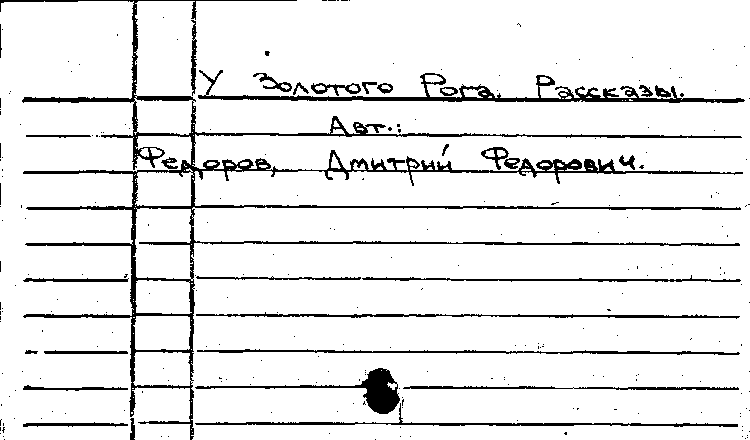 У Золотого Рога. Рассказы.
Авт.:
Федоров, Дмитрий Федорович.